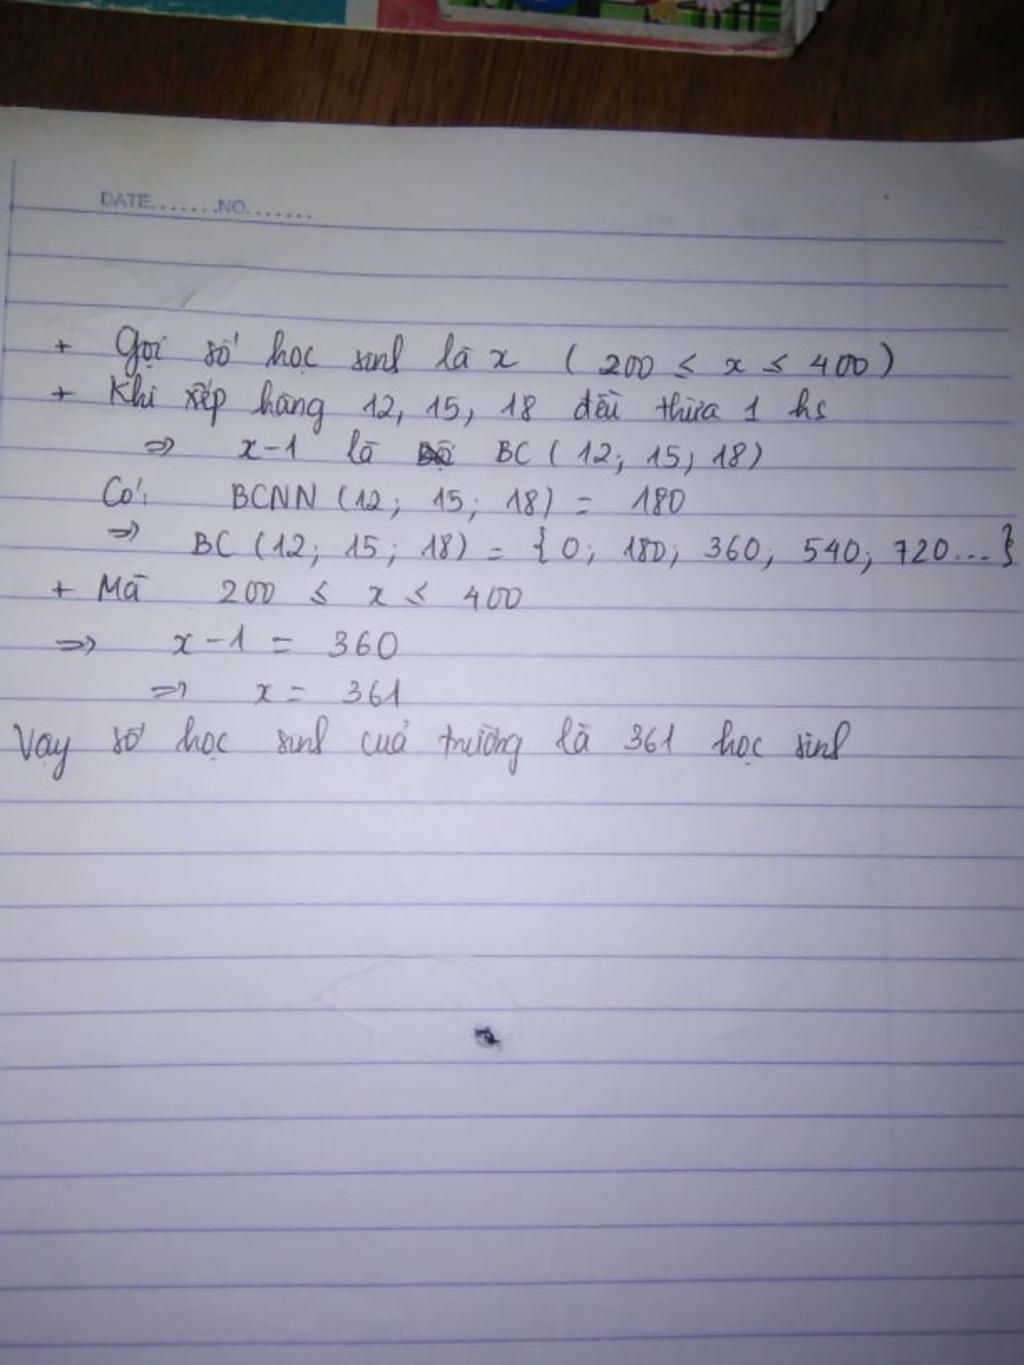 DATE.......NO.......
+ Gọi số học sinh là x ( 200 ≤ x ≤ 400 )
+ Khi xếp hàng 12, 15, 18 đều thừa 1 hs
=> x-1 là BC ( 12; 15; 18 )
Có: BCNN (12; 15; 18) = 180
=> BC (12; 15; 18) = { 0; 180; 360; 540; 720... }
+ Mà 200 ≤ x ≤ 400
=> x - 1 = 360
=> x = 361
Vậy số học sinh của trường là 361 học sinh